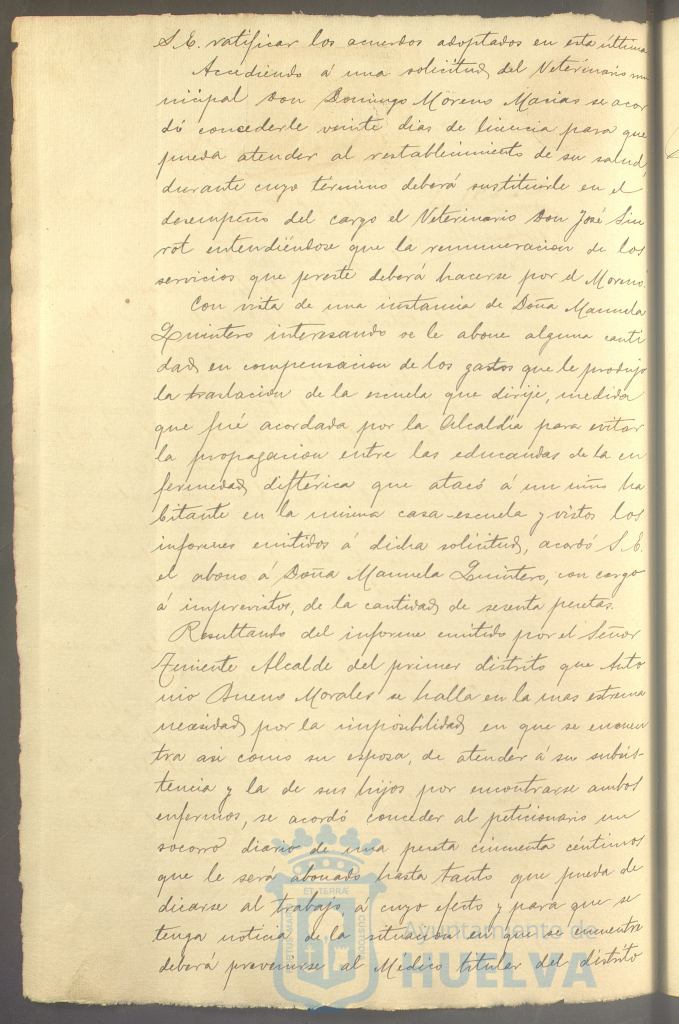 S.E. ratificar los acuerdos adoptados en esta última
Accediendo á una solicitud del Veterinario mu
nicipal Don Domingo Moreno Macias se acor
dó concederle veinte dias de licencia para que
pueda atender al restablecimiento de su salud,
durante cuyo término deberá sustituirle en el
desempeño del cargo el Veterinario Don José Sin
rot entendiéndose que la remuneracion de los
servicios que preste deberá hacerse por el Moreno.
Con vista de una instancia de Doña Manuela
Quintero interesando se le abone alguna canti
dad en compensacion de los gastos que le produjo
la traslacion de la escuela que dirije, medida
que fué acordada por la Alcaldía para evitar
la propagacion entre las educandas de la en
fermedad diftérica que atacó á un niño ha
bitante en la misma casa-escuela y vistos los
informes emitidos á dicha solicitud, acordó S.E.
el abono á Doña Manuela Quintero, con cargo
á imprevistos, de la cantidad de sesenta pesetas.
Resultando del informe emitido por el Señor
Teniente Alcalde del primer distrito que Anto
nio Bueno Morales se halla en la mas estrema
necesidad por la imposibilidad en que se encuen
tra asi como su esposa, de atender á su subsis-
tencia y la de sus hijos por encontrarse ambos
enfermos, se acordó conceder al peticionario un
socorro diario de una peseta cincuenta céntimos
que le será abonado hasta tanto que pueda de
dicarse al trabajo, á cuyo efecto y para que se
tenga noticia de la situacion en que se encuentre
deberá prevenirse al Médico titular del distrito
Ayuntamiento de
HUELVA